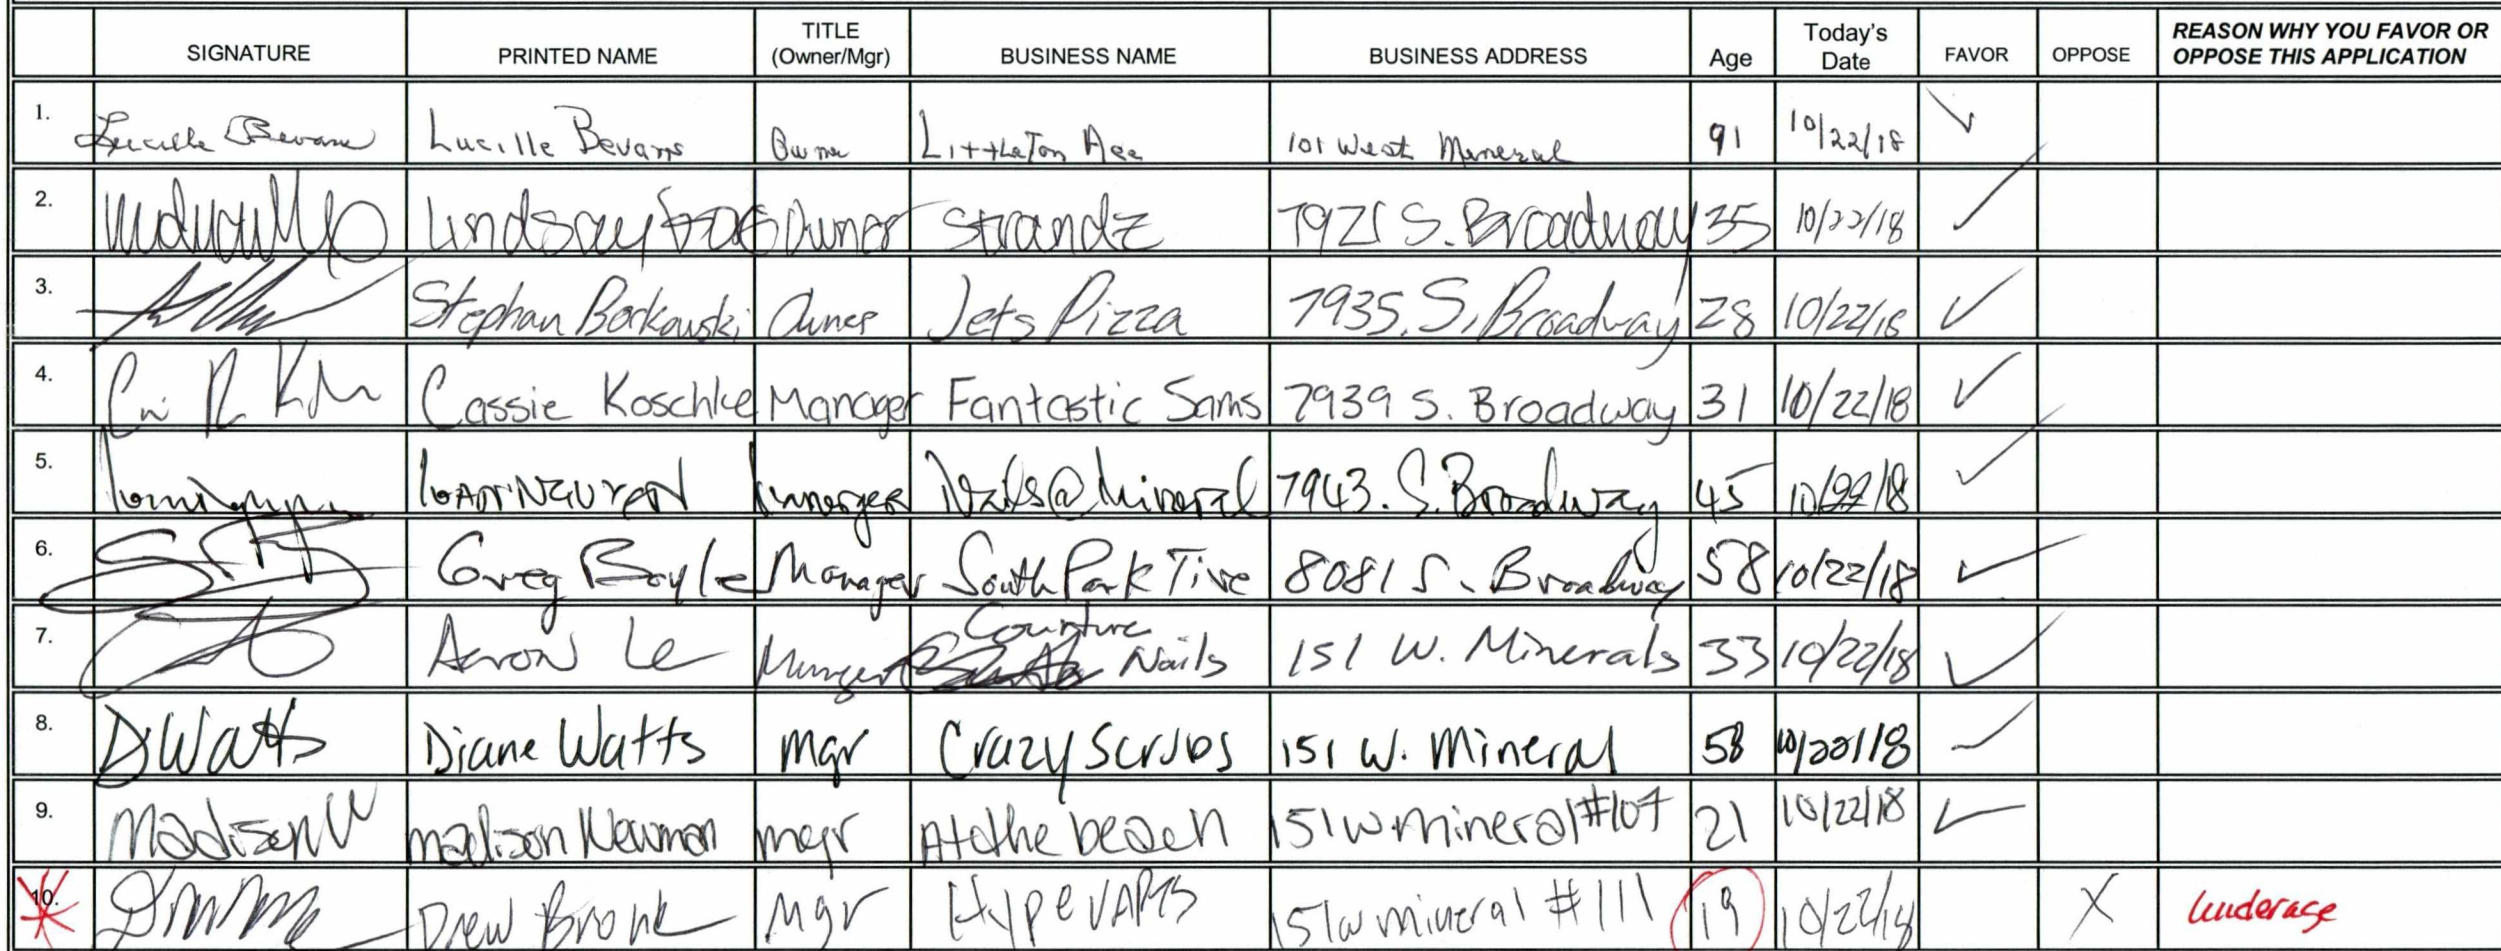 SIGNATURE PRINTED NAME TITLE (Owner/Mgr) BUSINESS NAME BUSINESS ADDRESS Age Today's Date FAVOR OPPOSE REASON WHY YOU FAVOR OR OPPOSE THIS APPLICATION
1. Lucille Bevans Lucille Bevans Owner Littleton Ace 101 West Mineral 91 10/22/18 ✓
2. Lindsay Owner Strandz 7921 S. Broadway 35 10/22/18 ✓
3. Stephan Borkowski Owner Jets Pizza 7935. S. Broadway 28 10/22/18 ✓
4. Cassie Koschke Manager Fantastic Sams 7939 S. Broadway 31 10/22/18 ✓
5. Nails@Mineral 7943. S. Broadway 45 10/22/18 ✓
6. Greg Boyle Manager South Park Tire 8081 S. Broadway 58 10/22/18 ✓
7. Aaron Le Manger Courture Nails 151 W. Minerals 33 10/22/18 ✓
8. D Watts Diane Watts mgr Crazy Scrubs 151 W. Mineral 58 10/22/18 ✓
9. Madison N madison Newman mgr At the beach 151 w mineral #107 21 10/22/18 ✓
10. Drew Bronk Mgr Hype VAPES 151 w mineral #111 19 10/22/18 X underage